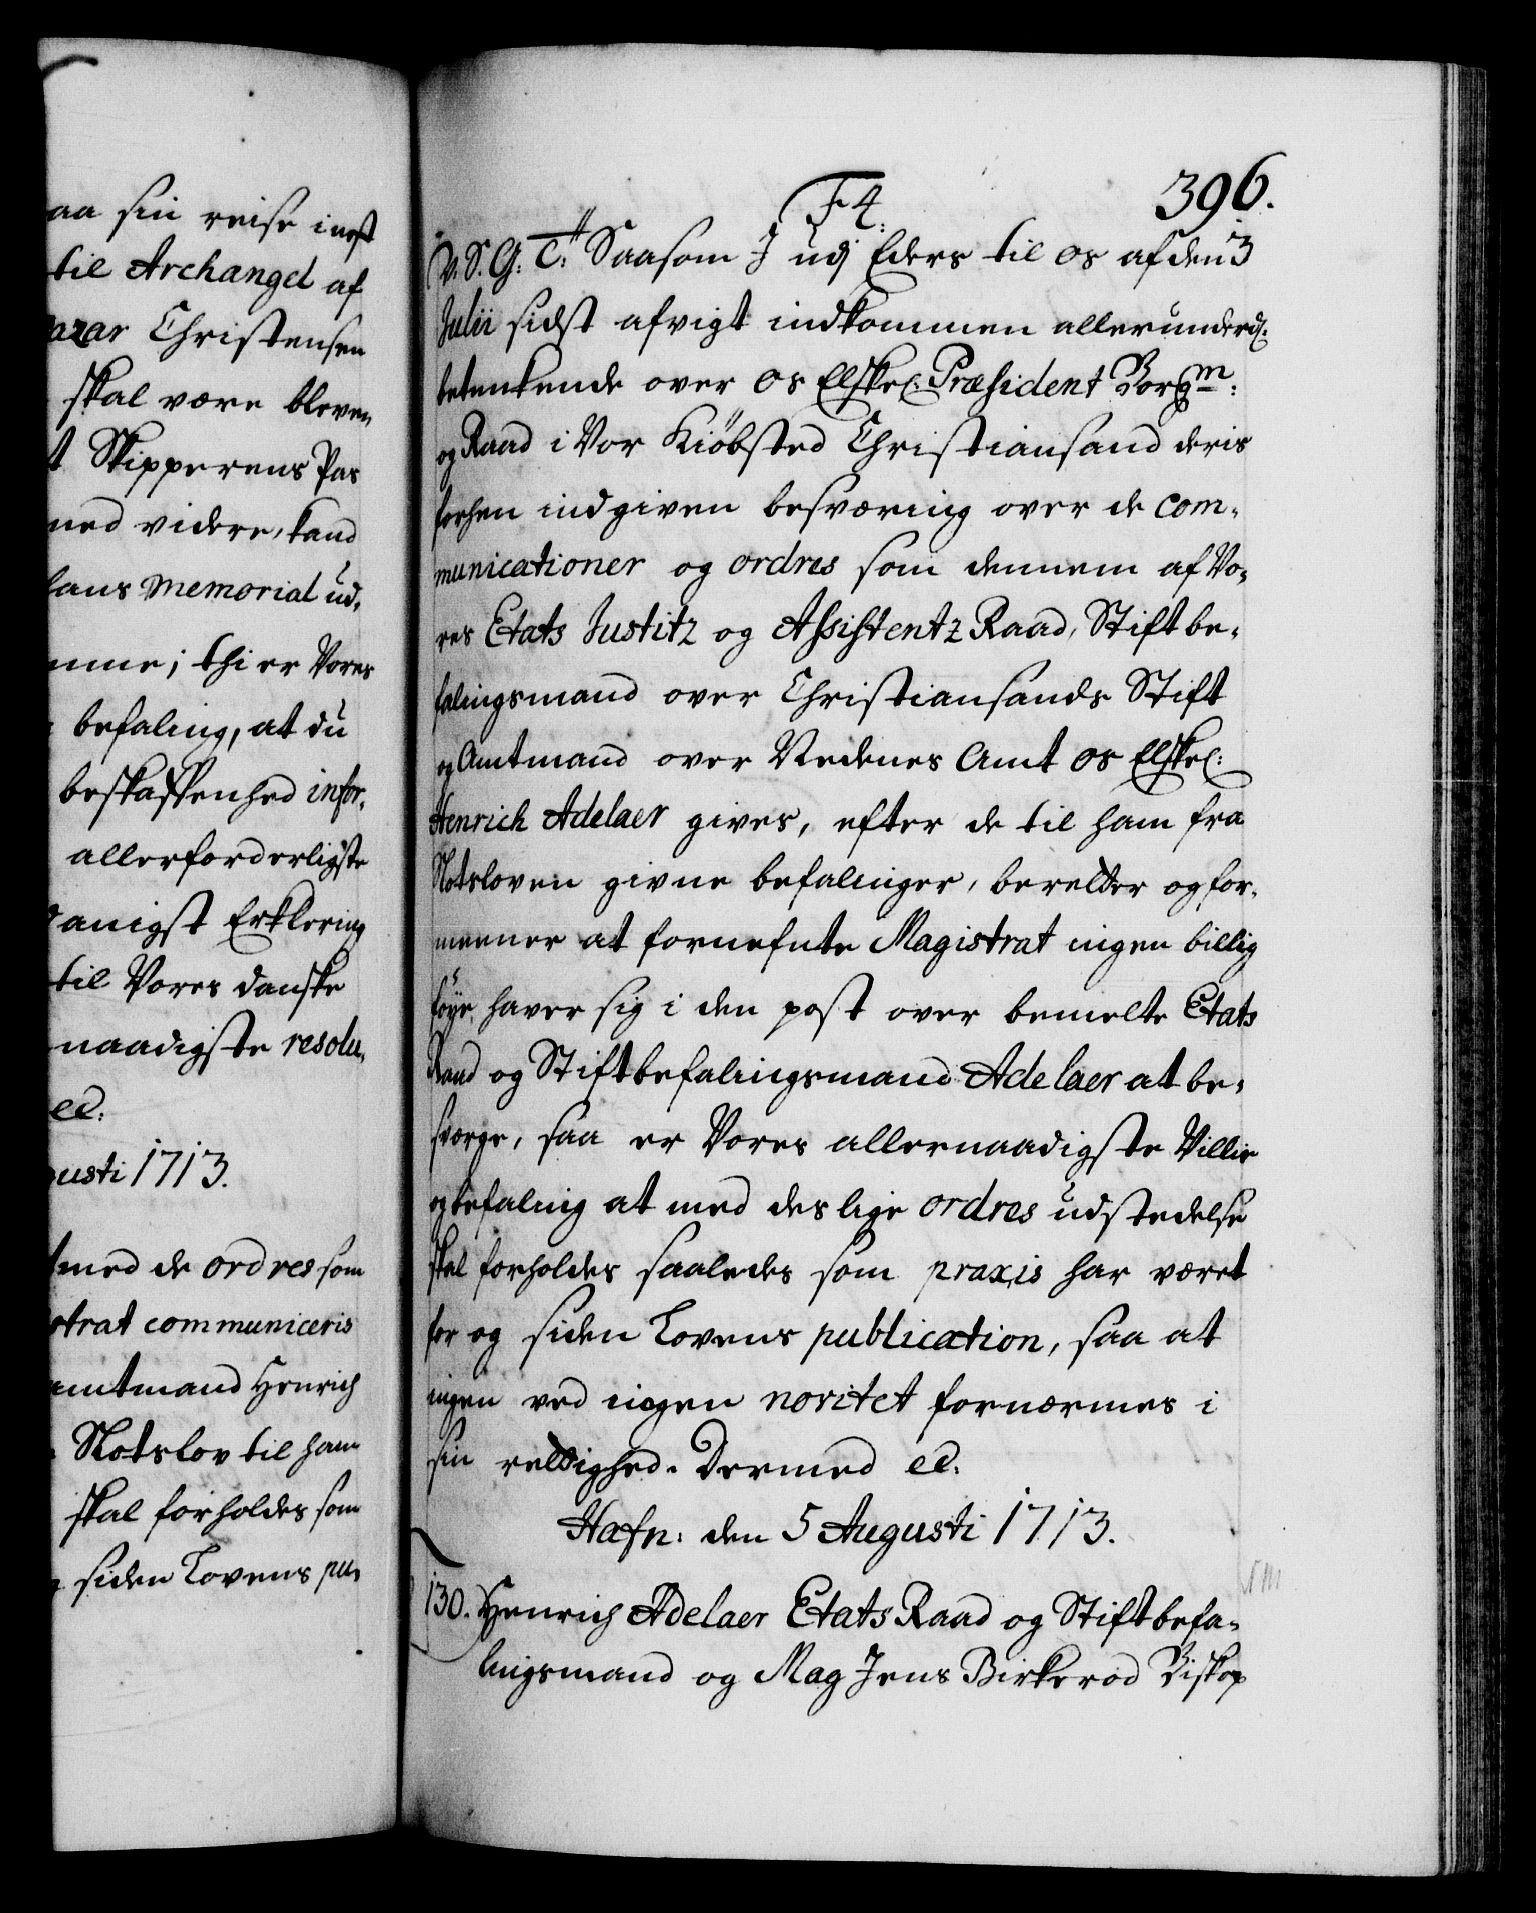 aa sin reise inest
til Archangel af
azar Christensen
skal være bleven
t Skipperens Pas
med videre, kand
hans Memorial ud,
mme; thi er Vores
befaling, at du
beskaffenhed infor,
allerforderligste
danigst Erklering
til Vores danske
naadigste resolu,
etc:
gusti 1713.
med de ordres som
strat communiceris
amtmand Henrich
Slotslov til ham
skal forholdes som
siden Lovens pu,
396.
F 4.
V. S. G. T. Saasom J udj Eders til os af den 3
Julii sidst afvigt indkommen allerunderd:
betenkende over os Elskel: Præsident Borgm:
og Raad i Vor Kiöbsted Christiansand deris
forhen indgiven besværing over de com,
municationer og ordres som dennem af Vo,
res Etats Justitz og Assistentz Raad, Stiftbe,
falingsmand over Christiansands Stift
og Amtmand over Nedenes Amt os Elskel:
Henrich Adelaer gives, efter de til ham fra
Slotsloven givne befalinger, beretter og for,
meener at fornefnte Magistrat ingen billig
föye haver sig i den post over bemelte Etats
Raad og Stiftbefalingsmand Adelaer at be,
sverge, saa er Vores allernaadigste Villie
og befaling at med deslige ordres udstedelse
skal forholdes saaledes som praxis har været
for og siden Lovens publication, saa at
ingen ved nogen novitet fornærmes i
sin rettighed. Dermed etc.
Hafn: den 5 Augusti 1713.
130. Henrich Adelaer Etats Raad og Stiftbefa,
lingsmand og Mag Jens Birkerod Biskop